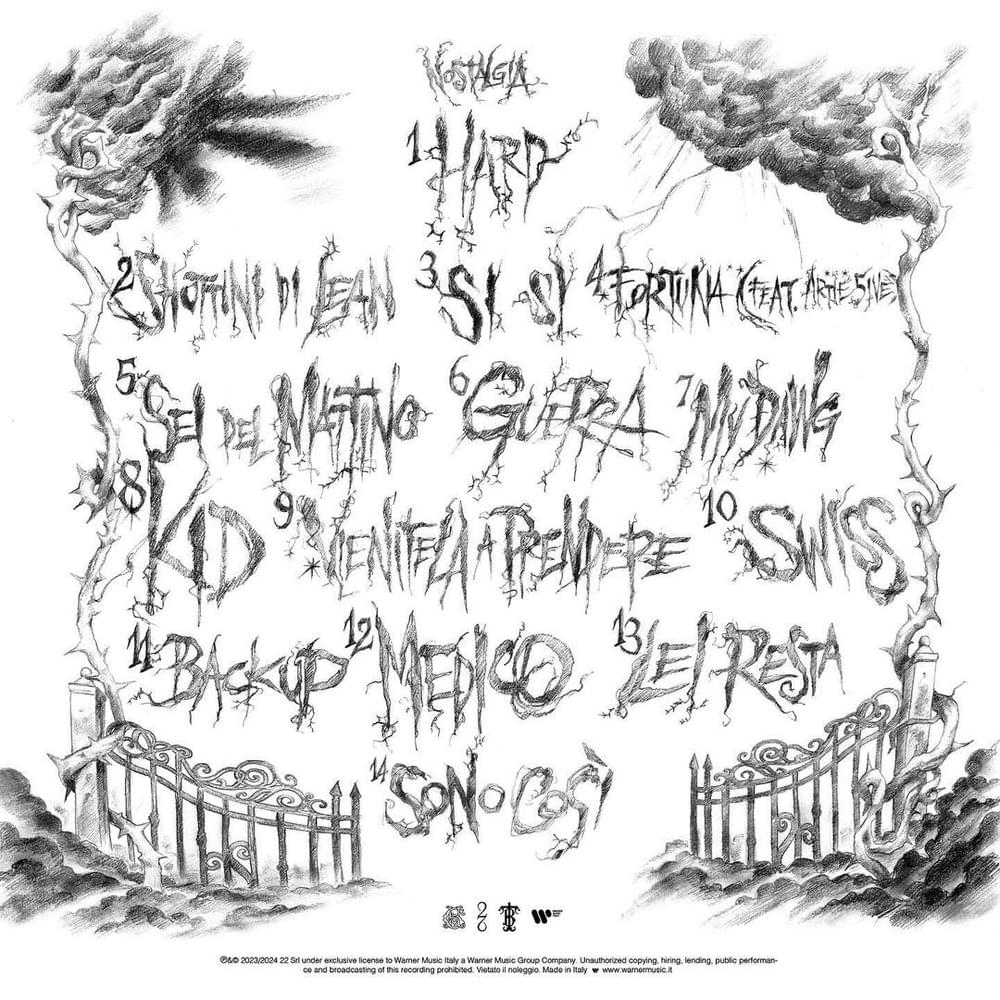 NOSTALGIA
1 HARD
2 SHOTTINI DI JEAN 3 SI SI 4 FORTUNA (FEAT. ARTIE 5IVE)
5 SEI DEL MATTINO 6 GUERRA 7 MY DAWG
8 KID 9 VIENITELA A PRENDERE 10 SWISS
11 BACKUP 12 MEDICO 13 LEI RESTA
14 SONO COSÌ
℗&© 2023/2024 22 Srl under exclusive license to Warner Music Italy a Warner Music Group Company. Unauthorized copying, hiring, lending, public performan-
ce and broadcasting of this recording prohibited. Vietato il noleggio. Made in Italy www.warnermusic.it